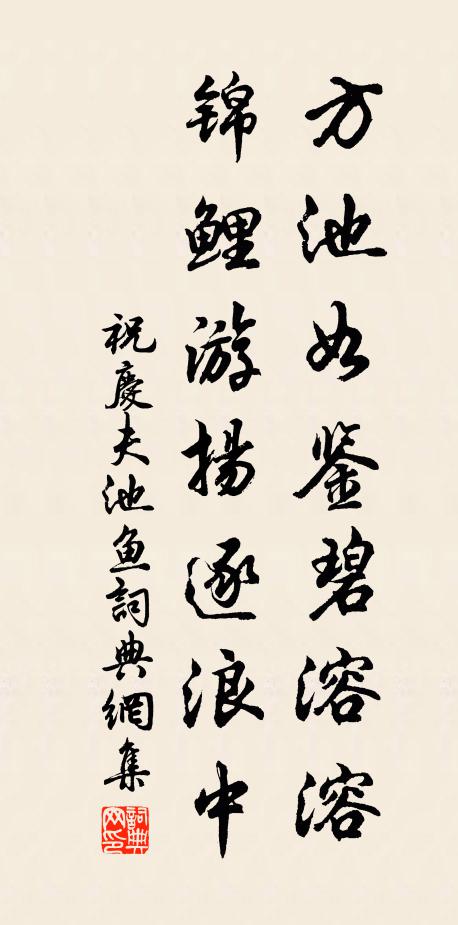 方池如鉴碧溶溶
锦鲤游扬逐浪中
祝慶夫池鱼詞典網集
詞典网印